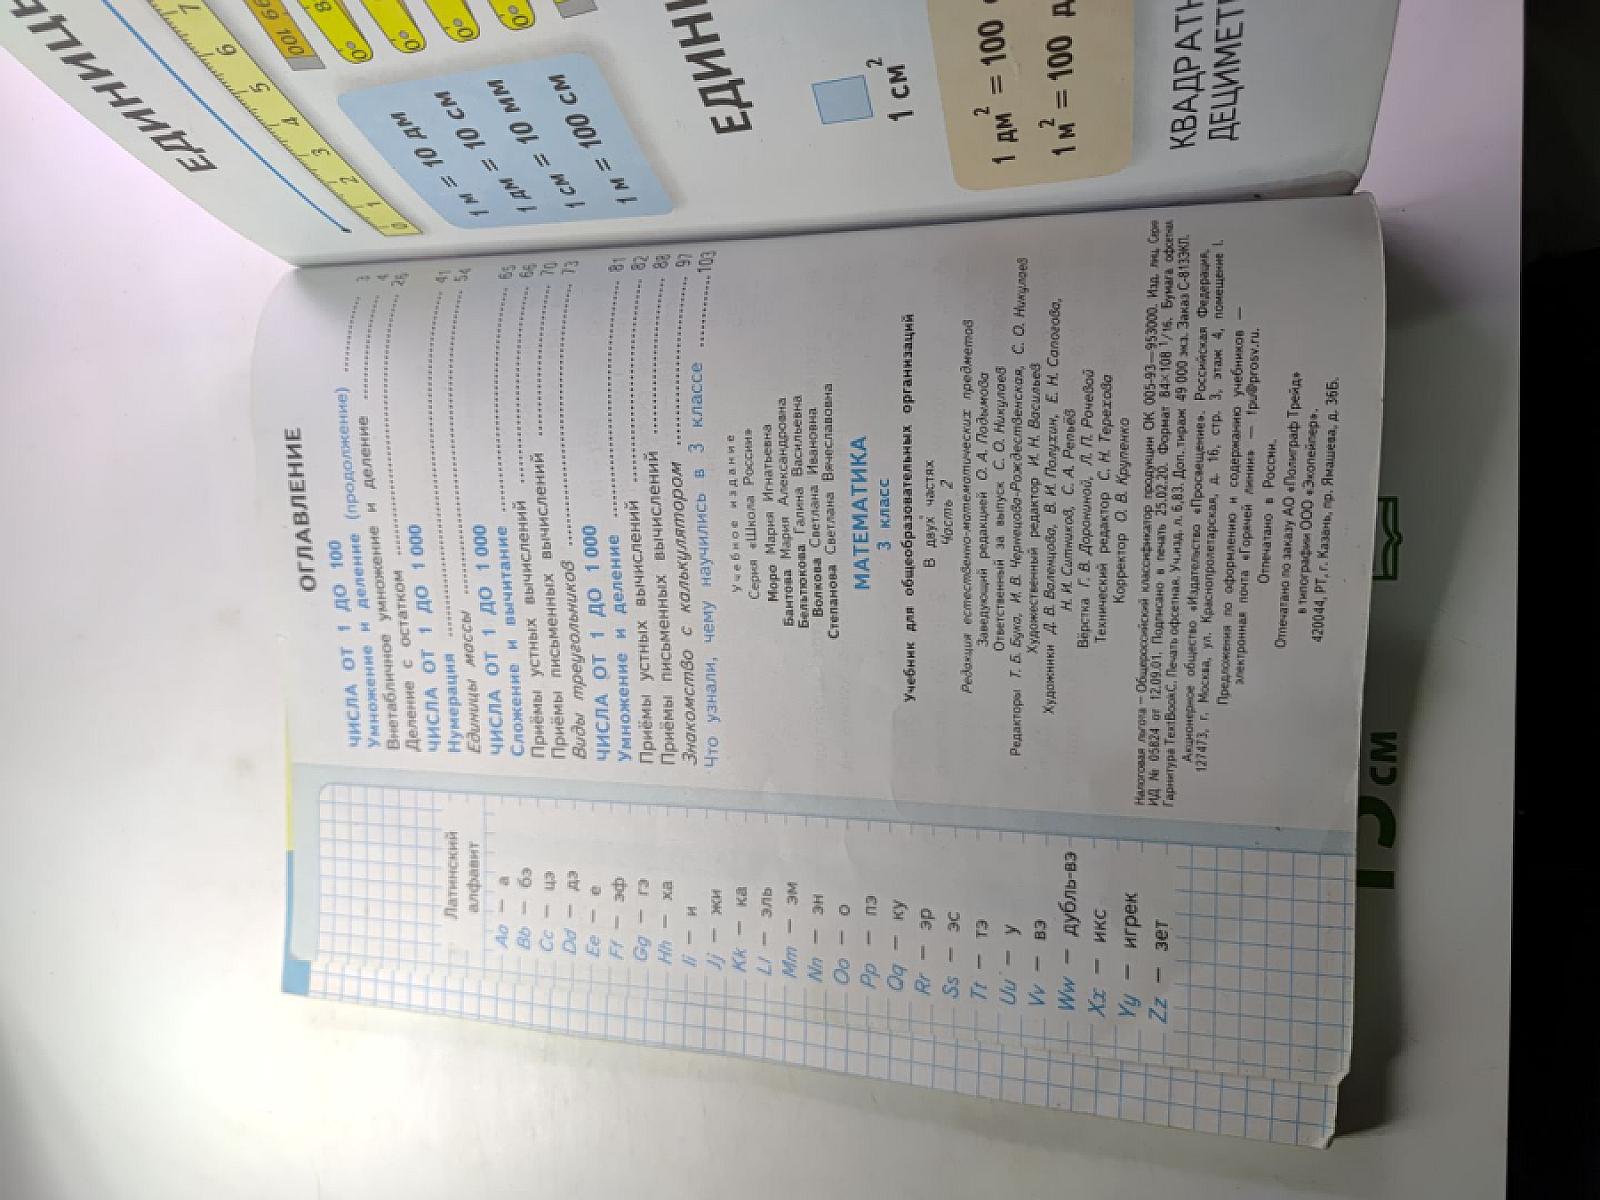 Латинский
алфавит
Aa — а
Bb — бэ
Cc — цэ
Dd — дэ
Ee — е
Ff — эф
Gg — гэ
Hh — ха
Ii — и
Jj — жи
Kk — ка
Ll — эль
Mm — эм
Nn — эн
Oo — о
Pp — пэ
Qq — ку
Rr — эр
Ss — эс
Tt — тэ
Uu — у
Vv — вэ
Ww — дубль-вэ
Xx — икс
Yy — игрек
Zz — зет
ОГЛАВЛЕНИЕ
ЧИСЛА ОТ 1 ДО 100
Умножение и деление (продолжение) 3
Внетабличное умножение и деление 4
Деление с остатком 26
ЧИСЛА ОТ 1 ДО 1 000
Нумерация 41
Единицы массы 54
ЧИСЛА ОТ 1 ДО 1 000
Сложение и вычитание 65
Приёмы устных вычислений 66
Приёмы письменных вычислений 70
Виды треугольников 73
ЧИСЛА ОТ 1 ДО 1 000
Умножение и деление 81
Приёмы устных вычислений 82
Приёмы письменных вычислений 88
Знакомство с калькулятором 97
Что узнали, чему научились в 3 классе 103
Учебное издание
Серия «Школа России»
Моро Мария Игнатьевна
Бантова Мария Александровна
Бельтюкова Галина Васильевна
Волкова Светлана Ивановна
Степанова Светлана Вячеславовна
МАТЕМАТИКА
3 класс
Учебник для общеобразовательных организаций
В двух частях
Часть 2
Редакция естественно-математических предметов
Заведующий редакцией О. А. Подымова
Ответственный за выпуск С. О. Никулаев
Редакторы Т. Б. Бука, И. В. Чернецова-Рождественская, С. О. Никулаев
Художественный редактор И. Н. Васильев
Художники Д. В. Валенцова, В. И. Полухин, Е. Н. Сапогова,
Н. И. Ситников, С. А. Репьёв
Вёрстка Г. В. Дорониной, Л. П. Роневой
Технический редактор С. Н. Терехова
Корректор О. В. Крупенко
Налоговая льгота — Общероссийский классификатор продукции ОК 005-93—953000. Изд. лиц. Серия
ИД № 05824 от 12.09.01. Подписано в печать 25.02.20. Формат 84×108 1/16. Бумага офсетная.
Гарнитура TextBookC. Печать офсетная. Уч.изд. л. 6,83. Доп. тираж 49 000 экз. Заказ С-813ЭКП.
Акционерное общество «Издательство «Просвещение». Российская Федерация,
127473, г. Москва, ул. Краснопролетарская, д. 16, стр. 3, этаж 4, помещение I.
Предложения по оформлению и содержанию учебников —
электронная почта «Горячей линии» — fpu@prosv.ru.
Отпечатано в России.
Отпечатано по заказу АО «Полиграф Трейд»
в типографии ООО «Экопейпер».
420044, РТ, г. Казань, пр. Ямашева, д. 36Б.
ЕДИНИЦЫ
0 1 2 3 4 5 6 7
1 м = 10 дм
1 дм = 10 см
1 см = 10 мм
1 м = 100 см
1 см²
1 дм² = 100
1 м² = 100
СМ